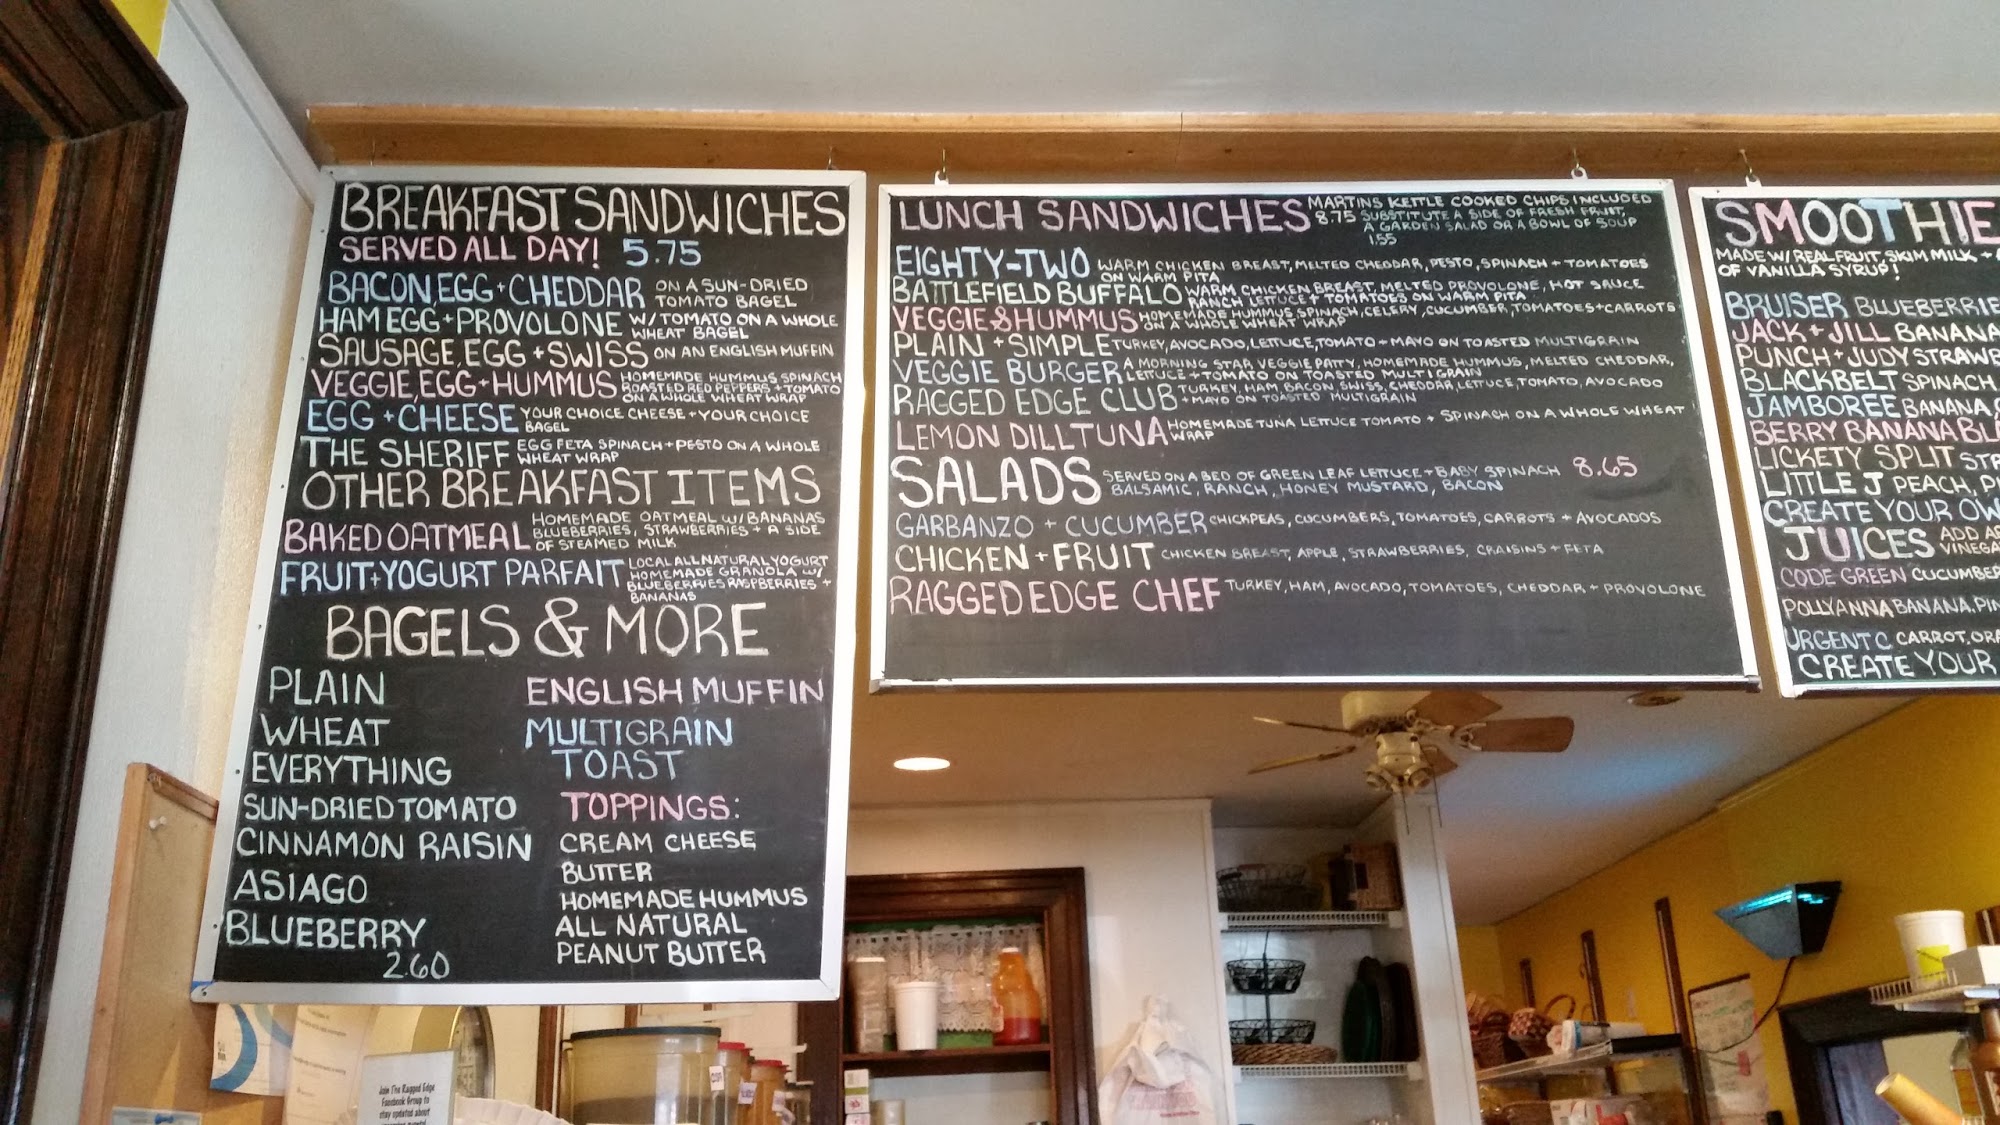 BREAKFAST SANDWICHES
SERVED ALL DAY! 5.75
BACON, EGG + CHEDDAR ON A SUN-DRIED
TOMATO BAGEL
HAM EGG + PROVOLONE W/ TOMATO ON A WHOLE
WHEAT BAGEL
SAUSAGE, EGG + SWISS ON AN ENGLISH MUFFIN
VEGGIE, EGG + HUMMUS HOMEMADE HUMMUS SPINACH
ROASTED RED PEPPERS + TOMATO
ON A WHOLE WHEAT WRAP
EGG + CHEESE YOUR CHOICE CHEESE + YOUR CHOICE
BAGEL
THE SHERIFF EGG FETA SPINACH + PESTO ON A WHOLE
WHEAT WRAP
OTHER BREAKFAST ITEMS
BAKED OATMEAL HOMEMADE OATMEAL W/ BANANAS
BLUEBERRIES, STRAWBERRIES + A SIDE
OF STEAMED MILK
FRUIT + YOGURT PARFAIT LOCAL ALL NATURAL YOGURT
HOMEMADE GRANOLA W/
BLUEBERRIES RASPBERRIES +
BANANAS
BAGELS & MORE
PLAIN
WHEAT
EVERYTHING
SUN-DRIED TOMATO
CINNAMON RAISIN
ASIAGO
BLUEBERRY
2.60
ENGLISH MUFFIN
MULTIGRAIN
TOAST
TOPPINGS:
CREAM CHEESE
BUTTER
HOMEMADE HUMMUS
ALL NATURAL
PEANUT BUTTER
LUNCH SANDWICHES MARTINS KETTLE COOKED CHIPS INCLUDED
8.75 SUBSTITUTE A SIDE OF FRESH FRUIT,
A GARDEN SALAD OR A BOWL OF SOUP
1.55
EIGHTY-TWO WARM CHICKEN BREAST, MELTED CHEDDAR, PESTO, SPINACH + TOMATOES
ON WARM PITA
BATTLEFIELD BUFFALO WARM CHICKEN BREAST, MELTED PROVOLONE, HOT SAUCE
RANCH LETTUCE + TOMATOES ON WARM PITA
VEGGIE & HUMMUS HOMEMADE HUMMUS, SPINACH, CELERY, CUCUMBER, TOMATOES + CARROTS
ON A WHOLE WHEAT WRAP
PLAIN + SIMPLE TURKEY, AVOCADO, LETTUCE, TOMATO + MAYO ON TOASTED MULTIGRAIN
VEGGIE BURGER A MORNING STAR VEGGIE PATTY, HOMEMADE HUMMUS, MELTED CHEDDAR,
LETTUCE + TOMATO ON TOASTED MULTIGRAIN
RAGGED EDGE CLUB TURKEY, HAM, BACON, SWISS, CHEDDAR, LETTUCE, TOMATO, AVOCADO
+ MAYO ON TOASTED MULTIGRAIN
LEMON DILL TUNA HOMEMADE TUNA LETTUCE TOMATO + SPINACH ON A WHOLE WHEAT
WRAP
SALADS SERVED ON A BED OF GREEN LEAF LETTUCE + BABY SPINACH 8.65
BALSAMIC, RANCH, HONEY MUSTARD, BACON
GARBANZO + CUCUMBER CHICKPEAS, CUCUMBERS, TOMATOES, CARROTS + AVOCADOS
CHICKEN + FRUIT CHICKEN BREAST, APPLE, STRAWBERRIES, CRAISINS + FETA
RAGGED EDGE CHEF TURKEY, HAM, AVOCADO, TOMATOES, CHEDDAR + PROVOLONE
SMOOTHIE
MADE W/ REAL FRUIT, SKIM MILK +
OF VANILLA SYRUP!
BRUISER BLUEBERRIE
JACK + JILL BANANA
PUNCH + JUDY STRAWB
BLACKBELT SPINACH,
JAMBOREE BANANA,
BERRY BANANA BL
LICKETY SPLIT STR
LITTLE J PEACH, P
CREATE YOUR OW
JUICES ADD A
VINEGA
CODE GREEN CUCUMBER
POLLYANNA BANANA, PIN
URGENT C CARROT, ORA
CREATE YOUR
Join The Ragged Edge
Facebook Group to
stay updated about